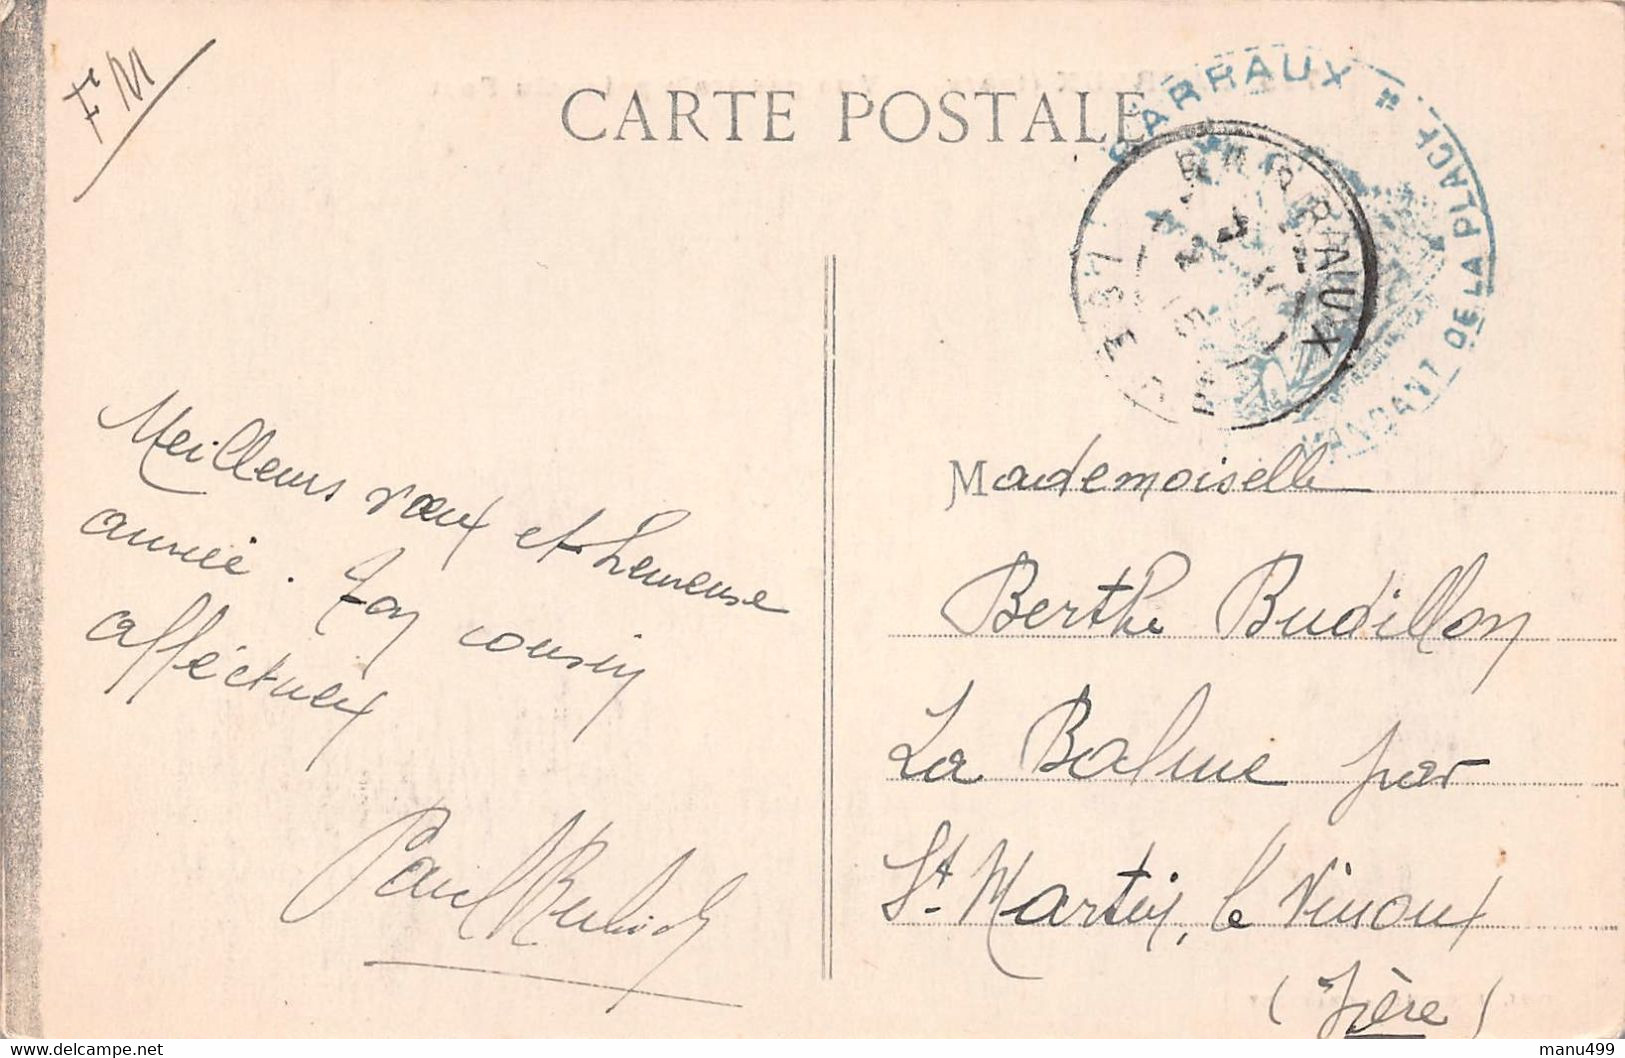 FM
CARTE POSTALE
BARRAUX * COMMANDANT DE LA PLACE
BARRAUX
ISERE
Meilleurs vœux et heureuse
année. Ton cousin
afféctueux
Paul
Mademoiselle
Berthe Budillon
La Balme par
St. Martin, le Vinoux
(Isère)
manu499